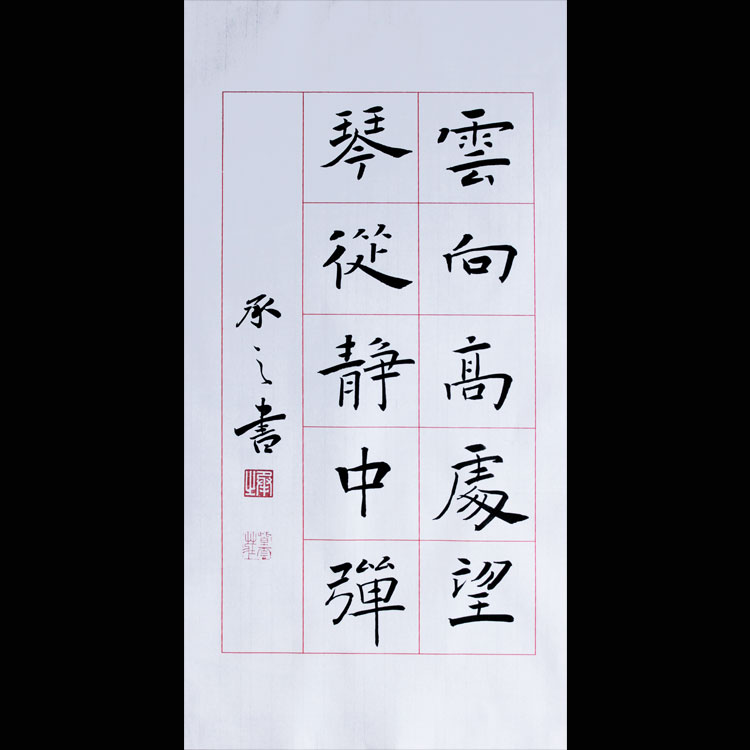 雲向高處望
琴從靜中彈
承之書